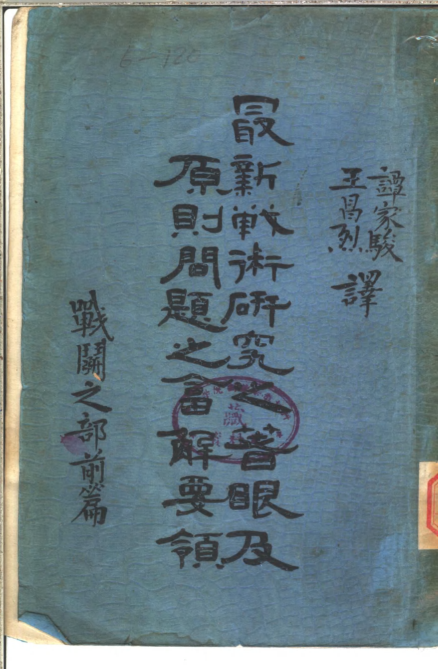 6-120
譚家駿
王昌烈
譯
最新戰術研究之着眼及
原則問題之答解要領
戰鬪之部前篇